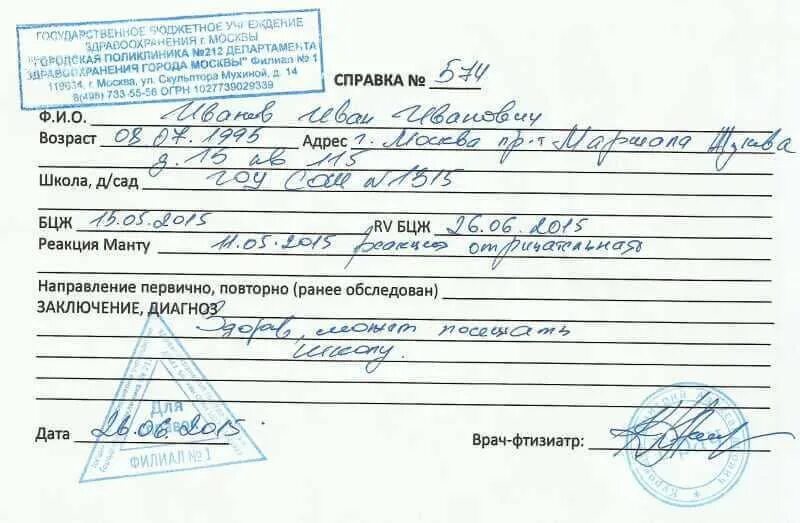 ГОСУДАРСТВЕННОЕ БЮДЖЕТНОЕ УЧРЕЖДЕНИЕ
ЗДРАВООХРАНЕНИЯ г. МОСКВЫ
"ГОРОДСКАЯ ПОЛИКЛИНИКА №212 ДЕПАРТАМЕНТА
ЗДРАВООХРАНЕНИЯ ГОРОДА МОСКВЫ" Филиал № 1
119634, г. Москва, ул. Скульптора Мухиной, д. 14
8(495) 733-55-56 ОГРН 1027739029339
СПРАВКА № 574
Ф.И.О. Иванов Иван Иванович
Возраст 08.07.1995 Адрес г. Москва пр-т Маршала Жукова
д. 15 кв 115
Школа, д/сад ГОУ СОШ №1315
БЦЖ 15.05.2015 RV БЦЖ 26.06.2015
Реакция Манту 11.05.2015 реакция отрицательная
Направление первично, повторно (ранее обследован)
ЗАКЛЮЧЕНИЕ, ДИАГНОЗ
Здоров, может посещать
школу.
Для
справок
ФИЛИАЛ № 1
Дата 26.06.2015
Врач-фтизиатр: